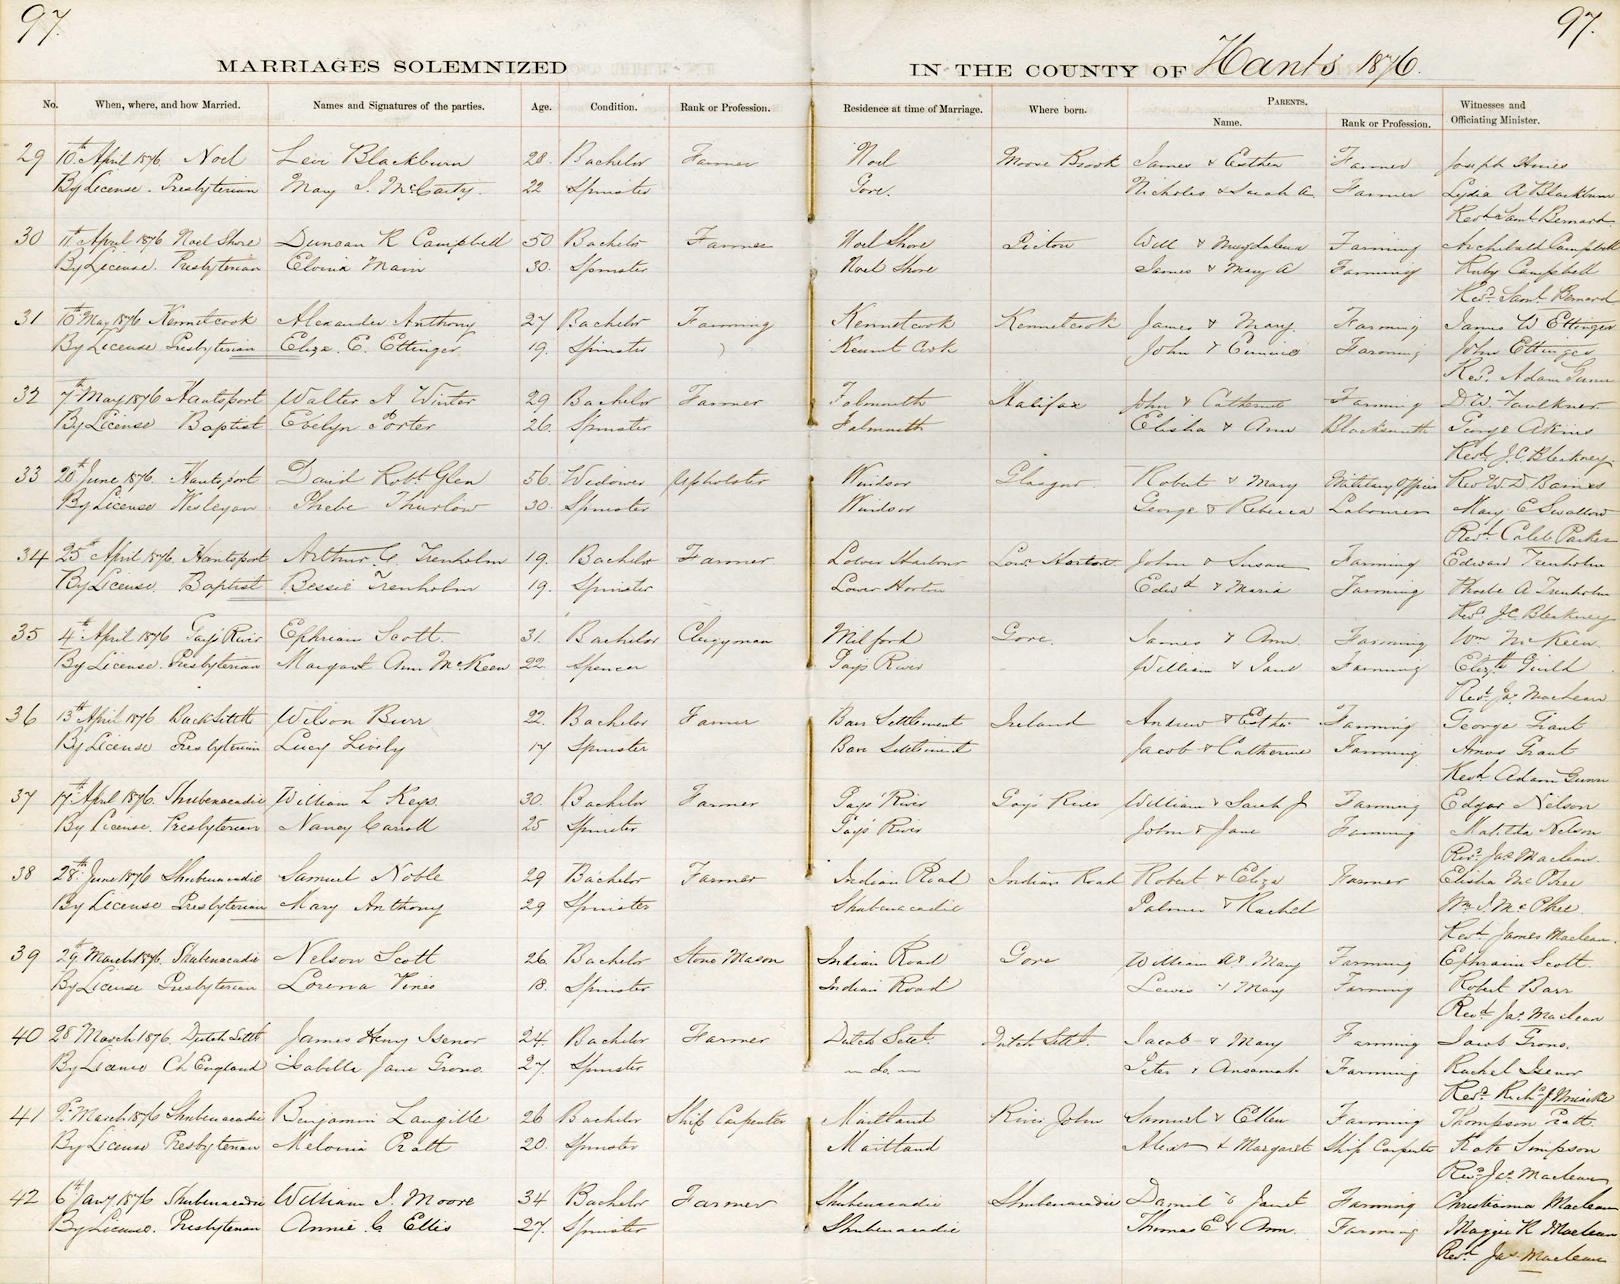 97.
97.
MARRIAGES SOLEMNIZED IN THE COUNTY OF Hants 1876.
No. When, where, and how Married. Names and Signatures of the parties. Age. Condition. Rank or Profession. Residence at time of Marriage. Where born. PARENTS. Name. Rank or Profession. Witnesses and Officiating Minister.
29 10th April 1876 Noel Levi Blackburn 28. Bachelor Farmer Noel Moose Brook James & Esther Farmer Joseph Hines
By License. Presbyterian Mary S. McCarty. 22 Spinster Gore. Nicholas & Sarah A. Farmer Lydia A Blackburn
Revd Saml Bernard
30 11th April 1876 Noel Shore Duncan R Campbell 50 Bachelor Farmer Noel Shore Picton Will & Magdalena Farming Archibald Campbell
By License. Presbyterian Elvina Main 30. Spinster Noel Shore James & Mary A Farming Ruby Campbell
Revd Saml Bernard
31 10th May 1876 Kennetcook Alexander Anthony 27 Bachelor Farming Kennetcook Kennetcook James & Mary. Farming James W Ettinger
By License Presbyterian Eliza. E. Ettinger 19. Spinster Kennet Cook John & Farming John Ettinger
Rev. Adam Gunn
32 7th May 1876 Hantsport Walter A Winter 29 Bachelor Farmer Falmouth Halifax John & Catherine Farming D. W. Faulkner
By License Baptist Evelyn Porter 26. Spinster Falmouth Elisha & Ann Blacksmith George Akins
Revd J. C. Bleakney.
33 20th June 1876. Hantsport David Robt Glen 56. Widower Upholster Windsor Glasgow. Robert & Mary Military Officer Rev W. D. Barnes
By License Wesleyan Phebe Thurlow 30. Spinster Windsor George & Rebecca Labourer Mary E Swallow
Revd Caleb Parker
34 25th April 1876. Hantsport Arthur C. Trenholm 19. Bachelor Farmer Lower Horton John & Susan Farming Edward Trenholm
By License. Baptist Bessie Trenholm 19. Spinster Lower Horton Edwd & Maria Farming Phoebe A Trenholm
Revd J. C. Bleakney
35 4th April 1876 Gay's River Ephriam Scott. 31. Bachelor Clergyman Milford Gore. James & Ann. Farming Wm McKeen.
By License. Presbyterian Margaret Ann McKeen 22. Spencer Gays River William & Jane Farming Elizth Guild
Revd Jas MacLean
36 13th April 1876 Wilson Burr 22. Bachelor Farmer Settlement Ireland Andrew & Esther Farming George Grant
By License Presbyterian Lucy Lively 17 Spinster Settlement Jacob & Catherine Farming Amos Grant
Revd Adam Gunn
37 17th April 1876. Shubenacadie William L Keys. 30. Bachelor Farmer Gays' River Gay's River William & Sarah J Farming Edgar Nelson
By License. Presbyterian Nancy Carroll 25 Spinster Gay's River John & Jane Farming Matilda Nelson
Revd Jas Maclean.
38 28th June 1876 Shubenacadie Samuel Noble 29 Bachelor Farmer Indian Road Indian Road Robert & Eliza Farmer Elisha McPhee
By License Presbyterian Mary Anthony 29 Spinster Shubenacadie Palmer & Rachel Wm J. McPhee
Revd James Maclean.
39 29th March 1876. Shubenacadie Nelson Scott 26 Bachelor Stone Mason Indian Road Gore William & Mary Farming Ephraim Scott.
By License Presbyterian Lorena Vines 18. Spinster Indian Road Lewis & Mary Farming Robert Barr
Revd Jas Maclean
40 28 March 1876. Dutch Settt James Henry Isenor 24. Bachelor Farmer Dutch Sett. Dutch Settt. Jacob & Mary Farming Jacob Grono.
By License Ch England Isabella Jane Grono. 27. Spinster — do. — Peter & Farming Rachel Isenor
Revd Richd J. Uniacke
41 9th March 1876 Shubenacadie Benjamin Langille 26 Bachelor Ship Carpenter Maitland River John Samuel & Ellen Farming Thompson Pratt.
By License Presbyterian Melonia Pratt 20. Spinster Maitland Alexr & Margaret Ship Carpenter Kate Simpson
Revd Jas Maclean
42 6th Jany 1876 Shubenacadie William J. Moore 34 Bachelor Farmer Shubenacadie Shubenacadie Daniel & Janet Farming Christianna Maclean
By License. Presbyterian Annie C. Ellis 27. Spinster Shubenacadie Thomas E & Ann. Farming Maggie R Maclean
Revd Jas Maclean